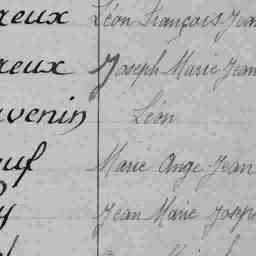 reux Léon François Jean
reux Joseph Marie Jean
uvenin Léon
euf Marie Ange Jean
y Jean Marie Joseph